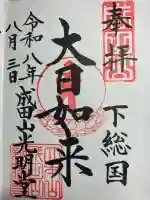 奉拝
下総国
大日如来
令和八年
八月三日
成田山光明堂